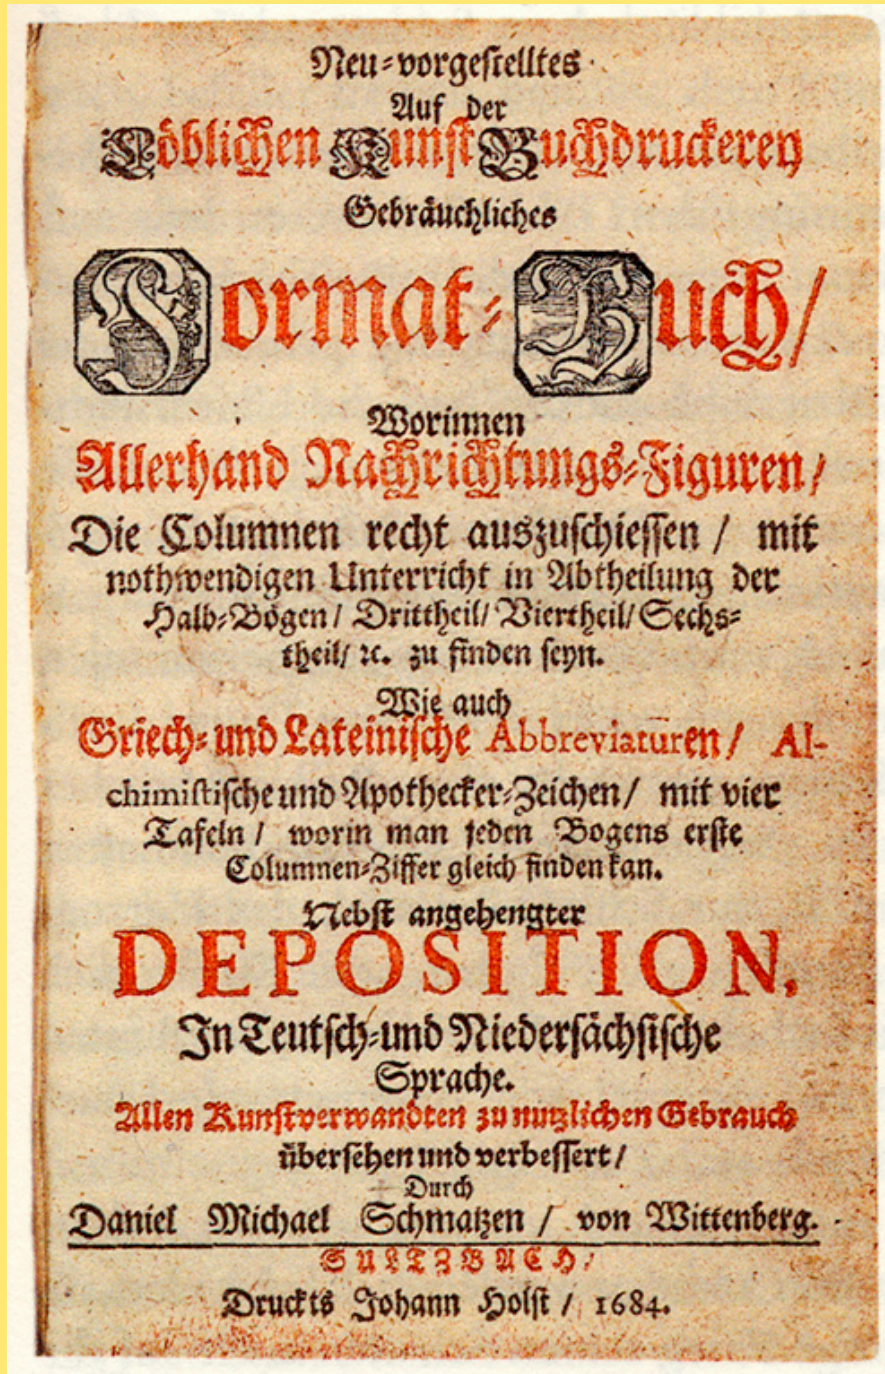 Neu-vorgestelltes
Auf der
Löblichen Kunst Buchdruckerey
Gebräuchliches
Format-Buch/
Worinnen
Allerhand Nachrichtungs-Figuren/
Die Columnen recht auszuschiessen / mit
nothwendigen Unterricht in Abtheilung der
Halb-Bögen / Drittheil/ Viertheil/ Sechs-
theil/ ꝛc. zu finden seyn.
Wie auch
Griech- und Lateinische Abbreviaturen / Al-
chimistische und Apothecker-Zeichen / mit vier
Tafeln / worin man jeden Bogens erste
Columnen-Ziffer gleich finden kan.
Nebst angehengter
DEPOSITION,
In Teutsch-und Niedersächsische
Sprache.
Allen Kunstverwandten zu nutzlichen Gebrauch
übersehen und verbessert /
Durch
Daniel Michael Schmatzen / von Wittenberg.
SULTZBACH/
Druckts Johann Holst / 1684.